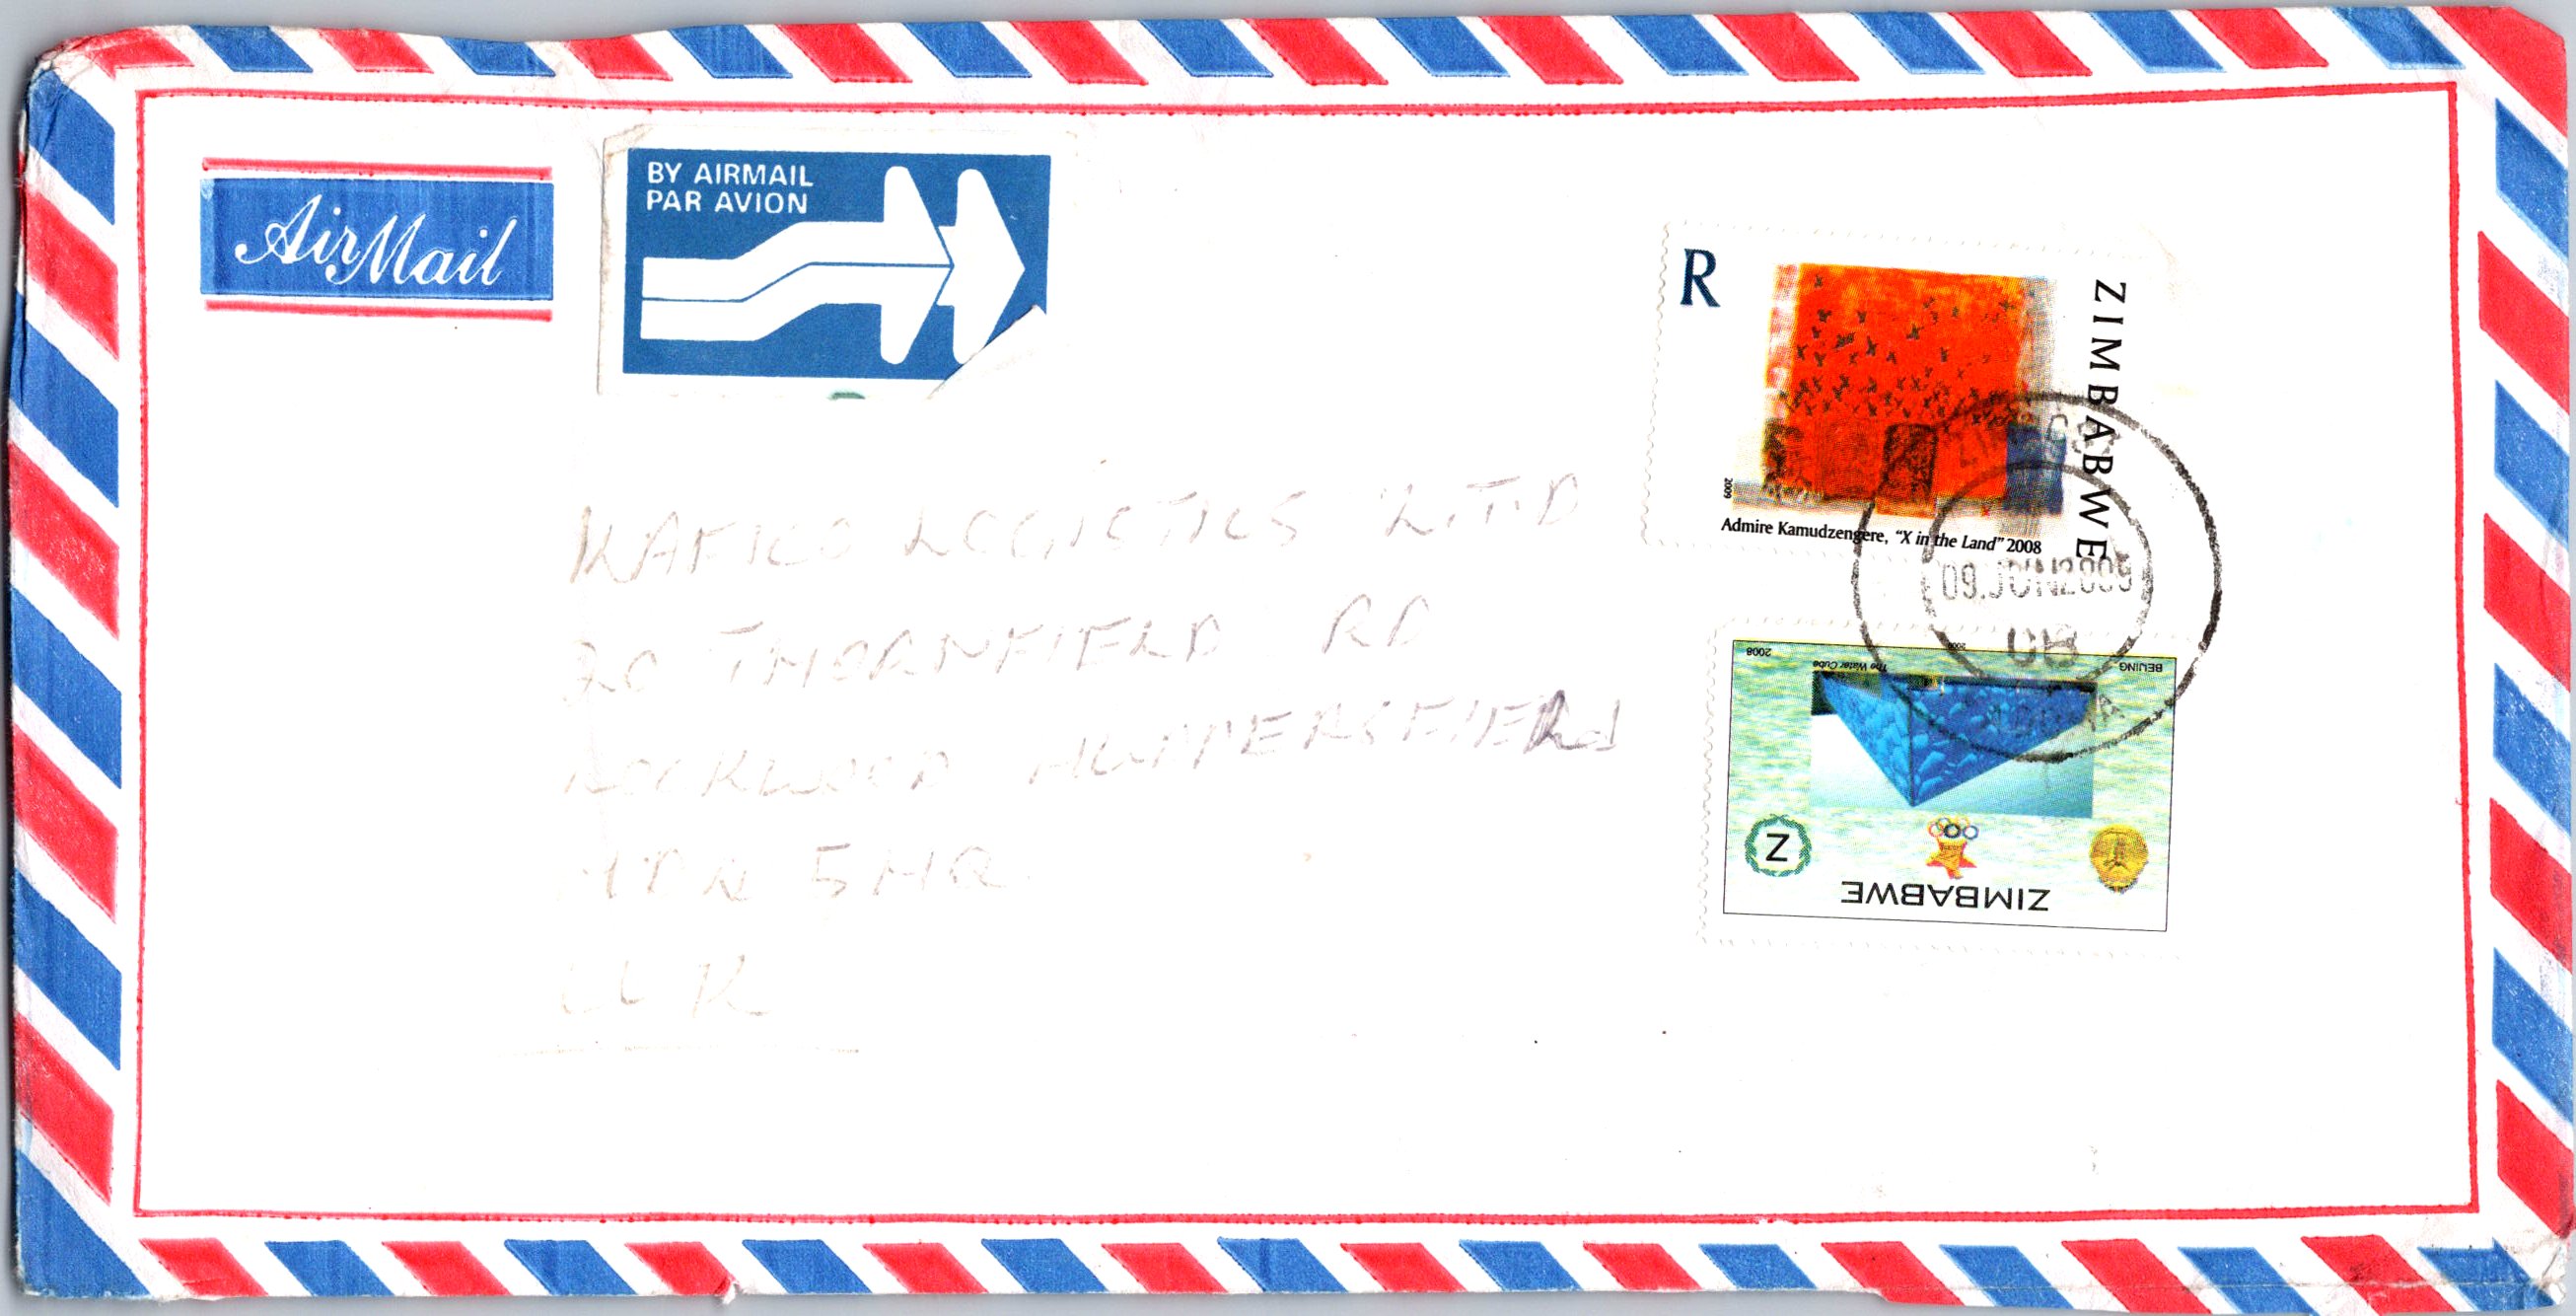 AirMail
BY AIRMAIL
PAR AVION
R
ZIMBABWE
2009
Admire Kamudzengere, "X in the Land" 2008
09.JUN2009
KAFICO LOGISTICS LTD
20 THORNFIELD RD
LOCKWOOD HUDDERSFIELD
5HQ
UK
BEIJING
2008
The Water Cube
2008
Z
ZIMBABWE